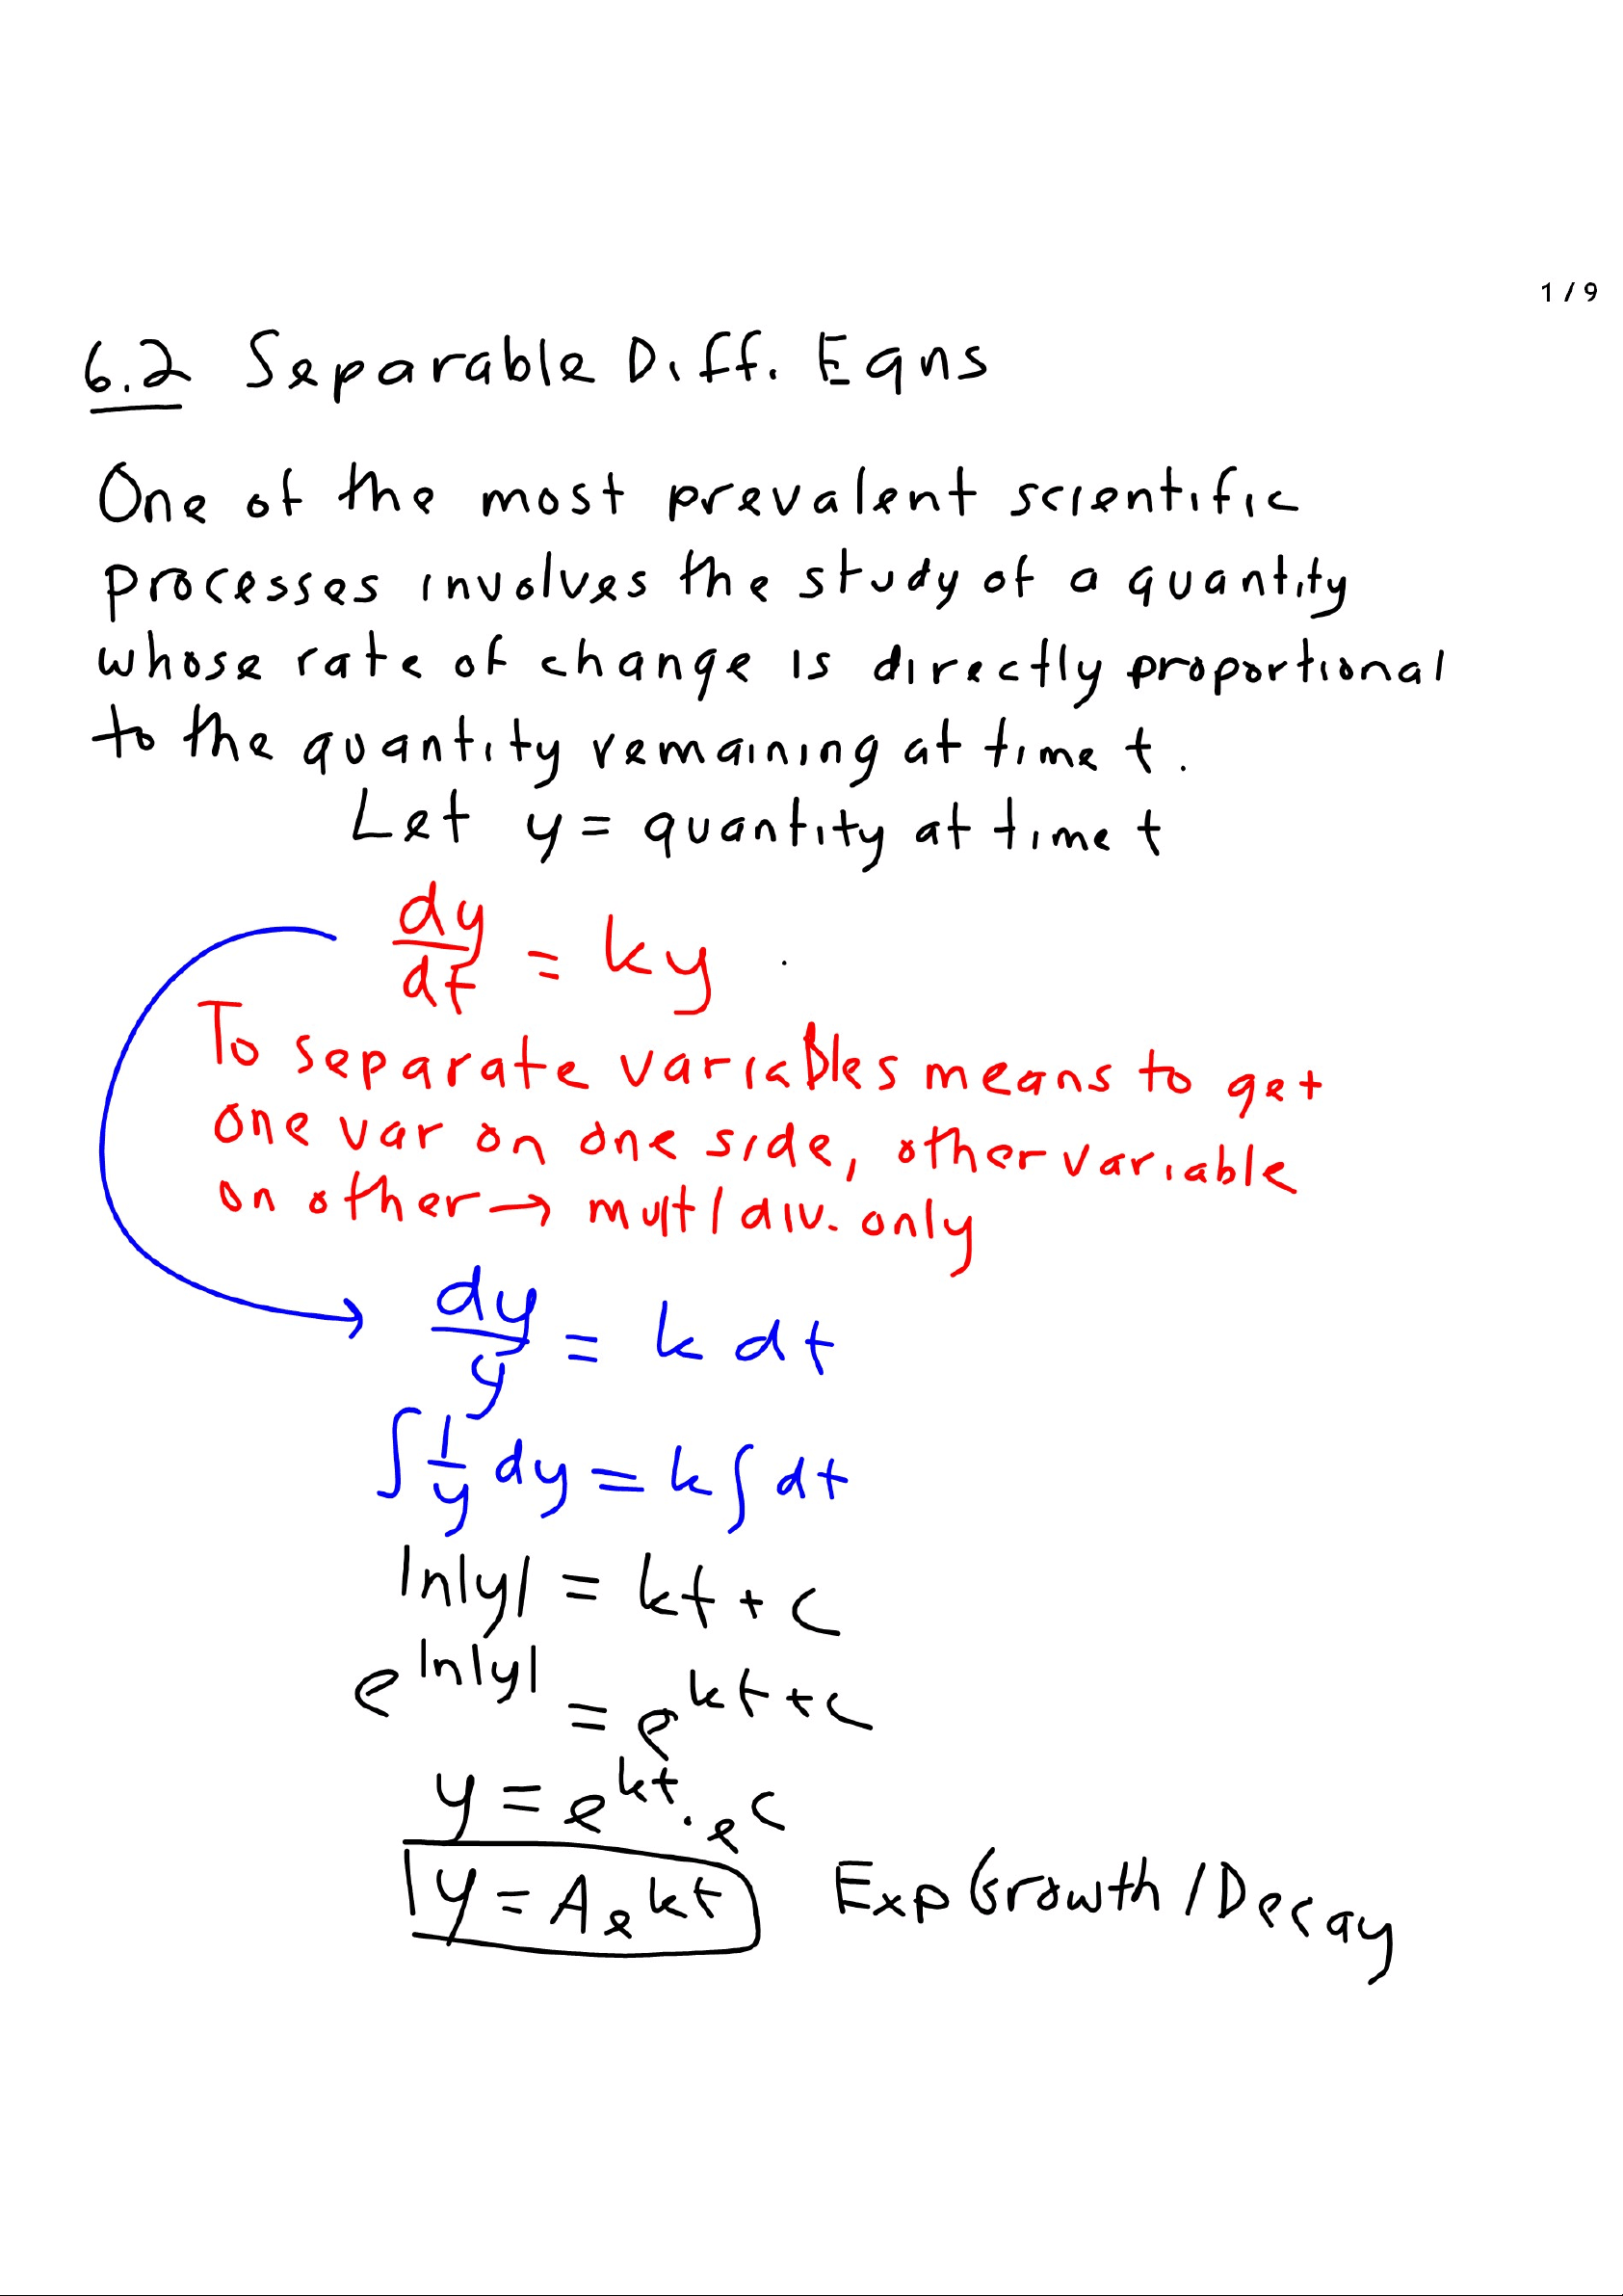 1 / 9
6.2 Separable Diff. Eqns
One of the most prevalent scientific
processes involves the study of a quantity
whose rate of change is directly proportional
to the quantity remaining at time t.
Let y = quantity at time t
dy/dt = ky
To separate variables means to get
one var on one side, other variable
on other → mult/div. only
dy/y = k dt
∫ 1/y dy = k ∫ dt
ln|y| = kt + c
e^ln|y| = e^kt+c
y = e^kt · e^c
y = Ae^kt Exp Growth/Decay